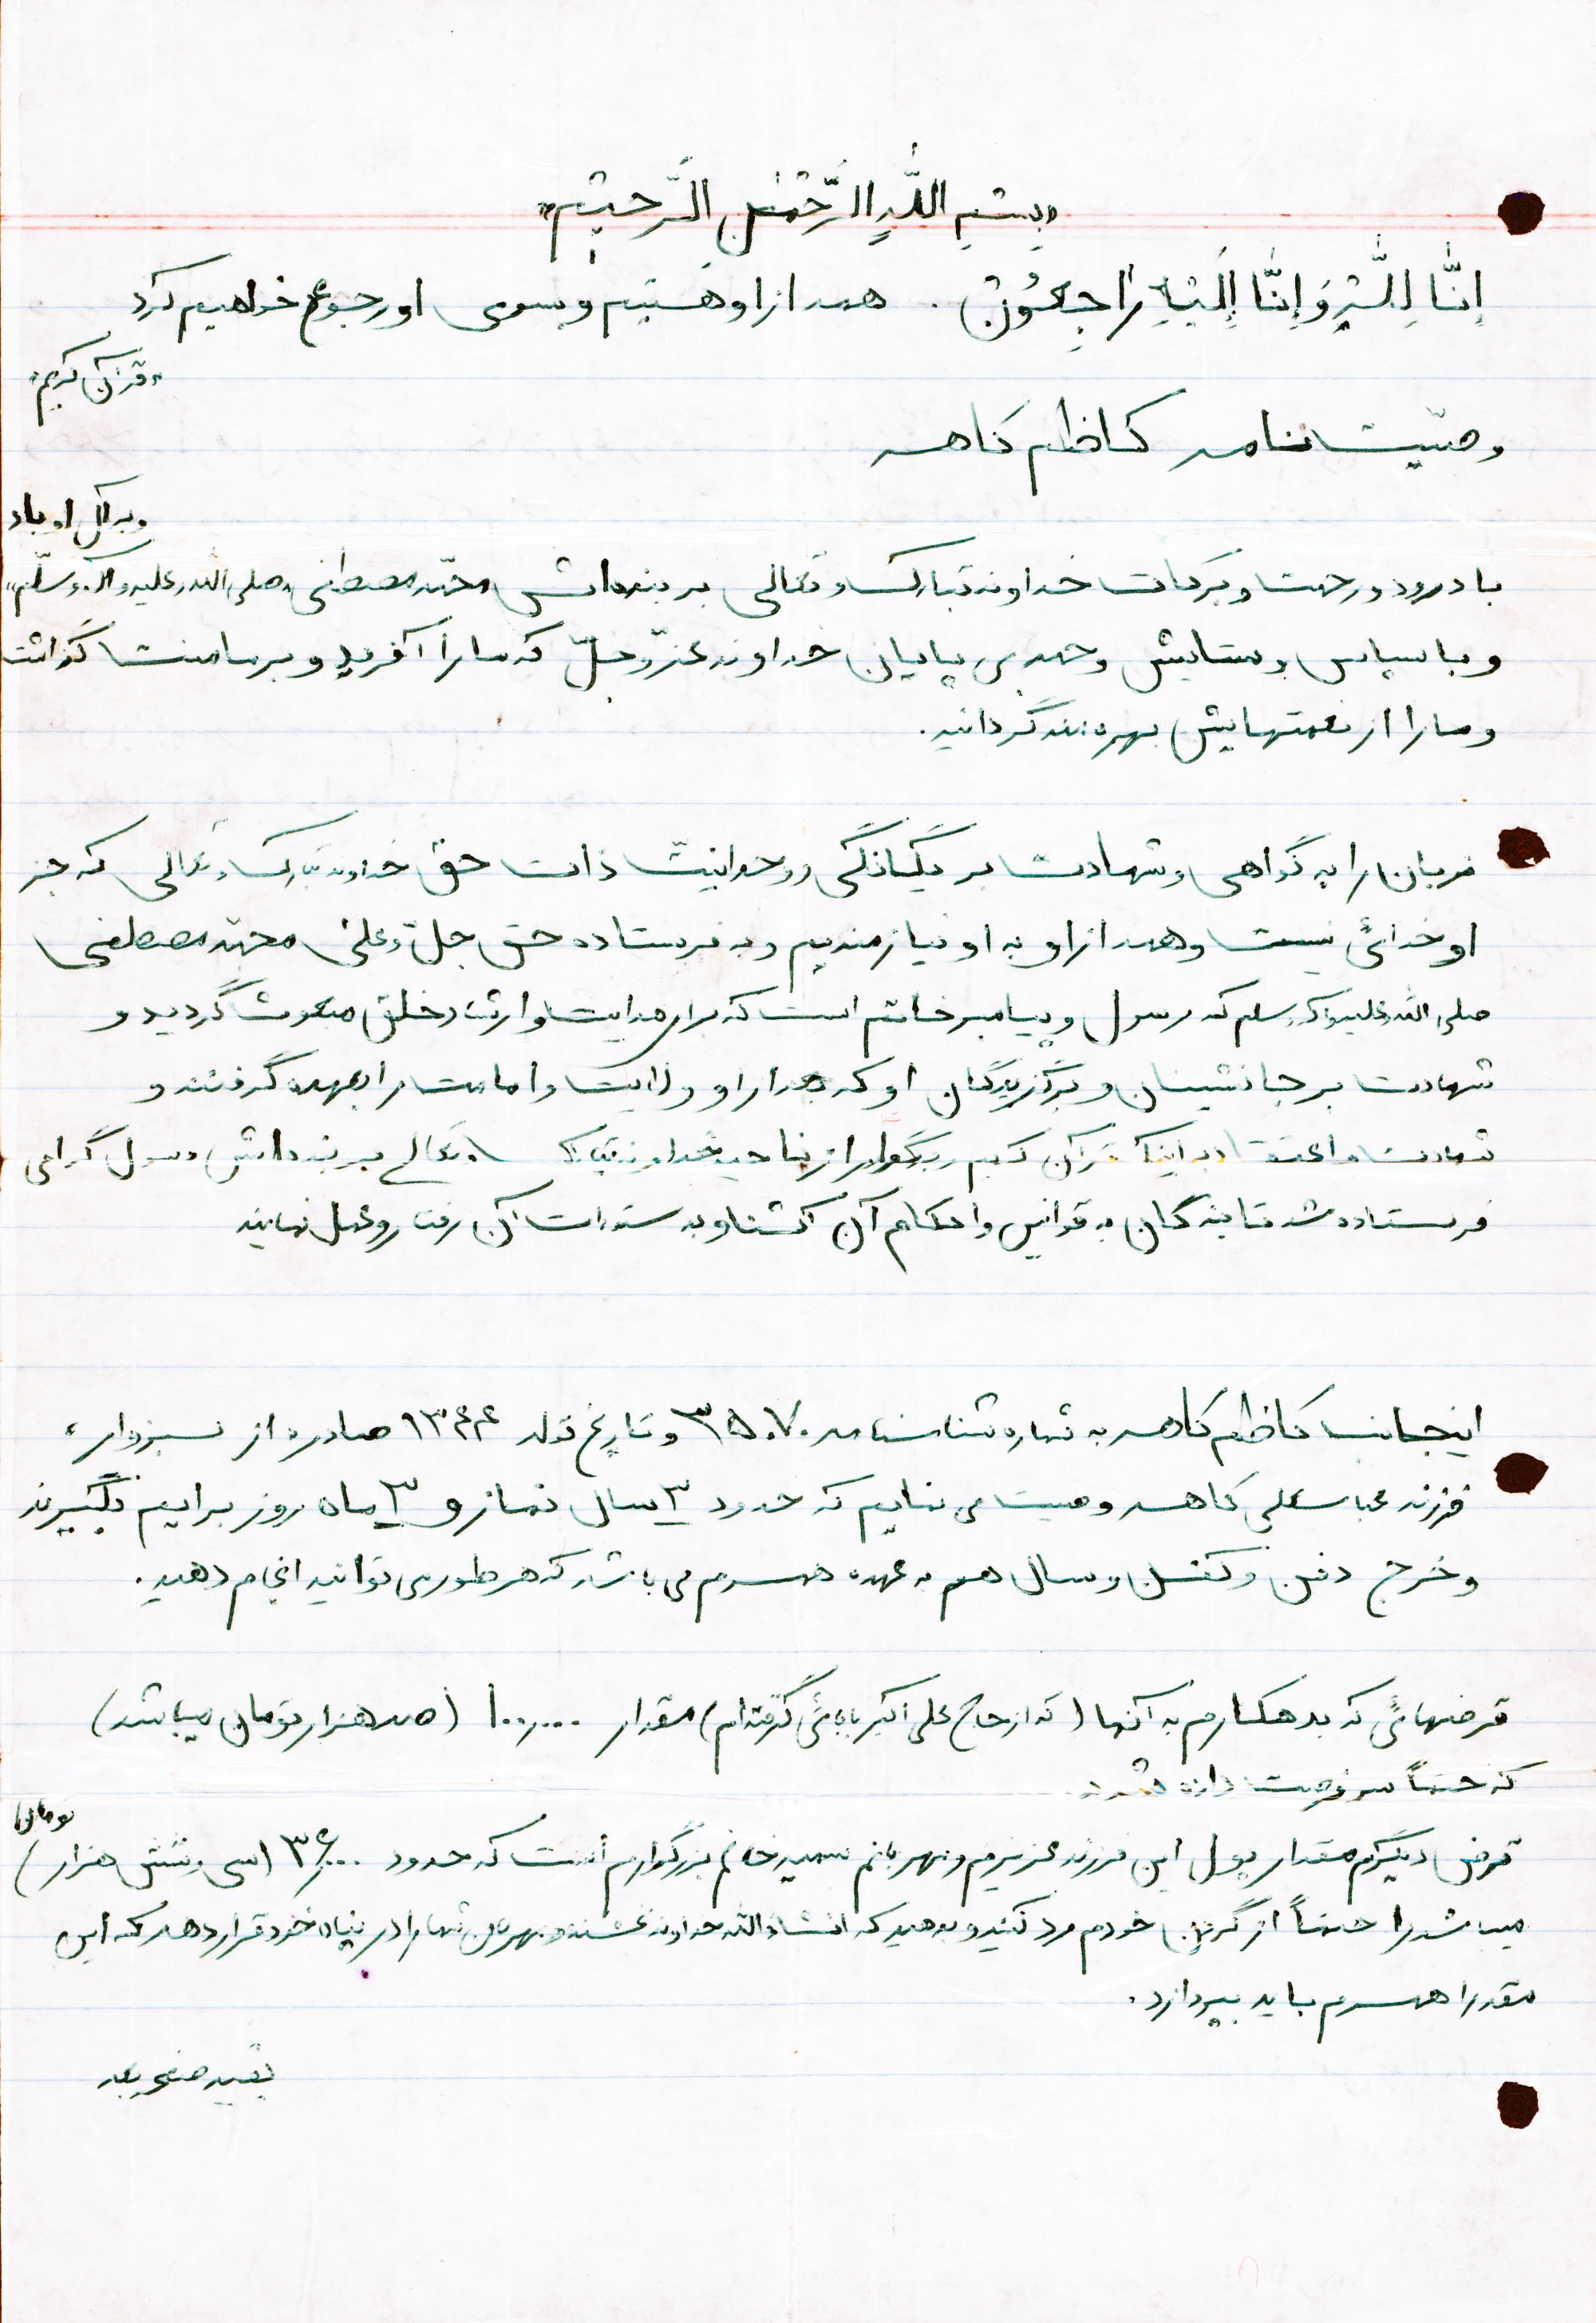 «بِسْمِ اللَّهِ الرَّحْمٰنِ الرَّحیٖمِ»
إِنَّا لِلَّٰهِ وَ إِنَّا إِلَیْهِ رٰاجِعُوُنَ . همه از او هستیم و بسوی او رجوع خواهیم کرد
«قرآن کریم»
وصیّت نامه کاظم کاهه
و بر آل او باد
با درود و رحمت و برکات خداوند تبارک و تعالی بر بنده‌اش محمّد مصطفی «صلی الله علیه و آله و سلّم»
و با سپاس و ستایش و حمد بی پایان خداوند عزّ و جلّ که ما را آفرید و بر ما منت گذاشت
و ما را از نعمتهایش بهره‌مند گردانید.
زبان را به گواهی و شهادت بر یگانگی و وحدانیّت ذات حق خداوند تبارک و تعالی که جز
او خدائی نیست و همه از او به او نیازمندیم و به فرستاده حق جلّ و علیٰ محمّد مصطفی
صلی الله علیه و آله و سلم که رسول و پیامبر خاتم است که برای هدایت و ارشاد خلق مبعوث گردید و
شهادت بر جانشینان و برگزیدگان او که بعد از او ولایت و امامت را بعهده گرفتند و
شهادت و اعتقاد به اینکه قرآن کریم از ناحیه خداوند تبارک و تعالی بر بنده‌اش رسول گرامی
فرستاده شد تا بندگان به قوانین و احکام آن آشنا و به دستورات آن رفتار و عمل نمایند
اینجانب کاظم کاهه به شماره شناسنامه ۳۵۰۷۰ و تاریخ تولد ۱۳۴۴ صادره از سبزوار،
فرزند عباسعلی کاهه وصیت می نمایم که حدود ۳ سال نماز و ۳ ماه روزه برایم بگیرند
و خرج دفن و کفن و سال هم به عهده همسرم می باشد که هر طور می توانید انجام دهید.
قرضهائی که بدهکارم به آنها (که از حاج علی اکبر بابائی گرفته‌ام) مقدار ۱۰۰٫۰۰۰ (صد هزار تومان میباشد)
که حتماً سر فرصت داده شود.
تومان
قرض دیگرم مقدار پول این فرزند عزیزم و مهربانم سمیه خانم بزرگوارم است که حدود ۳۶٫۰۰۰ (سی و شش هزار)
میباشد را حتماً از گردن خودم رد کنید و بدهید که انشاءالله خداوند بخشنده و مهربان شما را در پناه خود قرار دهد که این
مقدر را همسرم باید بپردازد.
بقیه صفحه بعد